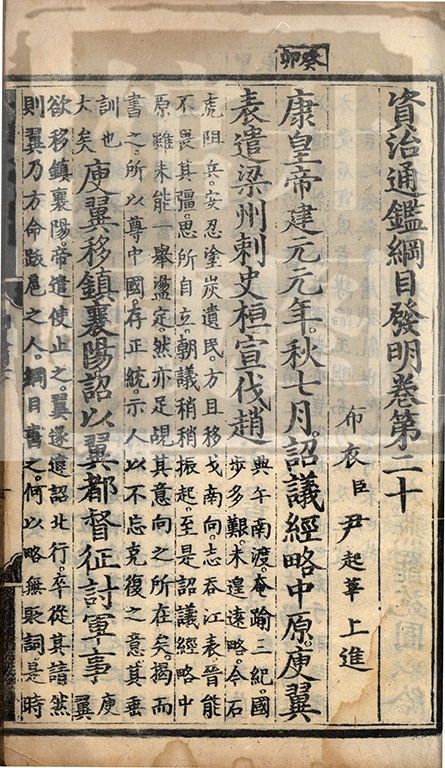 癸卯
資治通鑑綱目發明卷第二十
布衣臣尹起莘上進
康皇帝建元元年。秋七月。詔議經略中原。庾翼
表遣梁州刺史桓宣伐趙
典午南渡。奄踰三紀。國
步多艱。未遑遠略。今石
虎阻兵。安忍塗炭遺民。方且移戈南向。志吞江表。晉能
不畏其彊。思所自立。朝議稍稍振起。至是詔議經略中
原雖未能一舉盪定。然亦足覘其意向之所在矣。揭而
書之。所以尊中國。存正統。示人以不忘克復之意。其垂
訓也
大矣
庾翼移鎮襄陽詔以翼都督征討軍事
庾
翼
欲移鎮襄陽。帝遣使止之。翼遂違詔北行。卒從其請。然
則翼乃方命跋扈之人。綱目書之。何以略無貶詞。是時